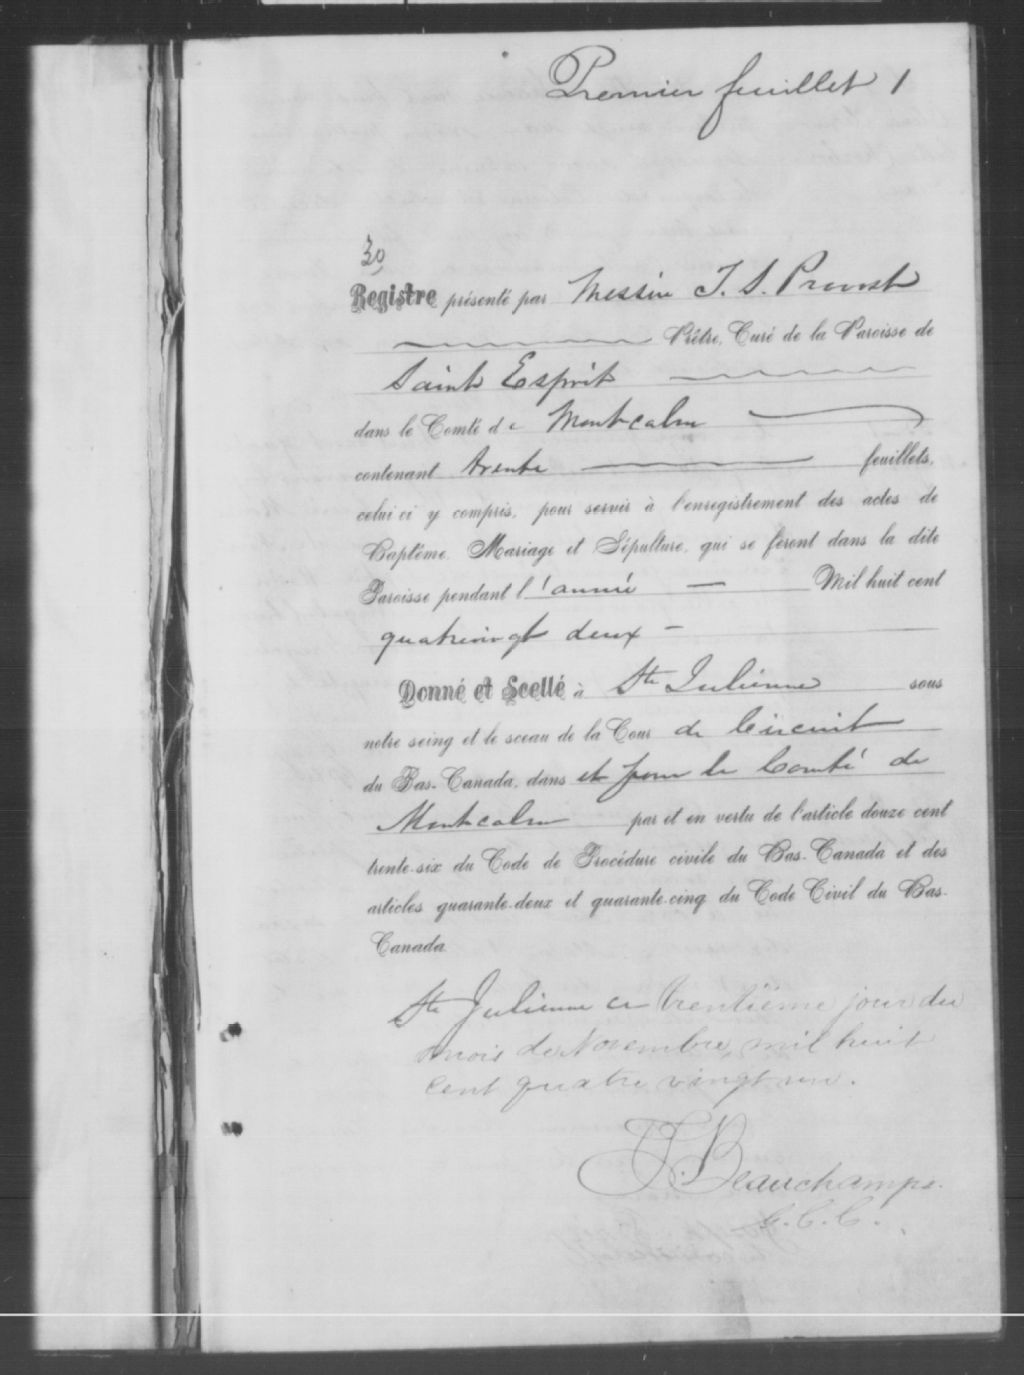 Premier feuillet 1
30
Registre présenté par Messire T. S. Provost
Prêtre, Curé de la Paroisse de
Saint Esprit
dans le Comté de Montcalm
contenant trente feuillets,
celui ci y compris, pour servir à l'enregistrement des actes de
Baptême, Mariage et Sépulture, qui se feront dans la dite
Paroisse pendant l'année Mil huit cent
quatrevingt deux -
Donné et Scellé à Ste Julienne sous
notre seing et le sceau de la Cour de Circuit
du Bas-Canada, dans et pour le Comté de
Montcalm par et en vertu de l'article douze cent
trente-six du Code de Procédure civile du Bas-Canada et des
articles quarante-deux et quarante-cinq du Code Civil du Bas-
Canada.
Ste Julienne ce trentième jour du
mois de Novembre, mil huit
cent quatre vingt un.
Beauchamps.
G.C.C.